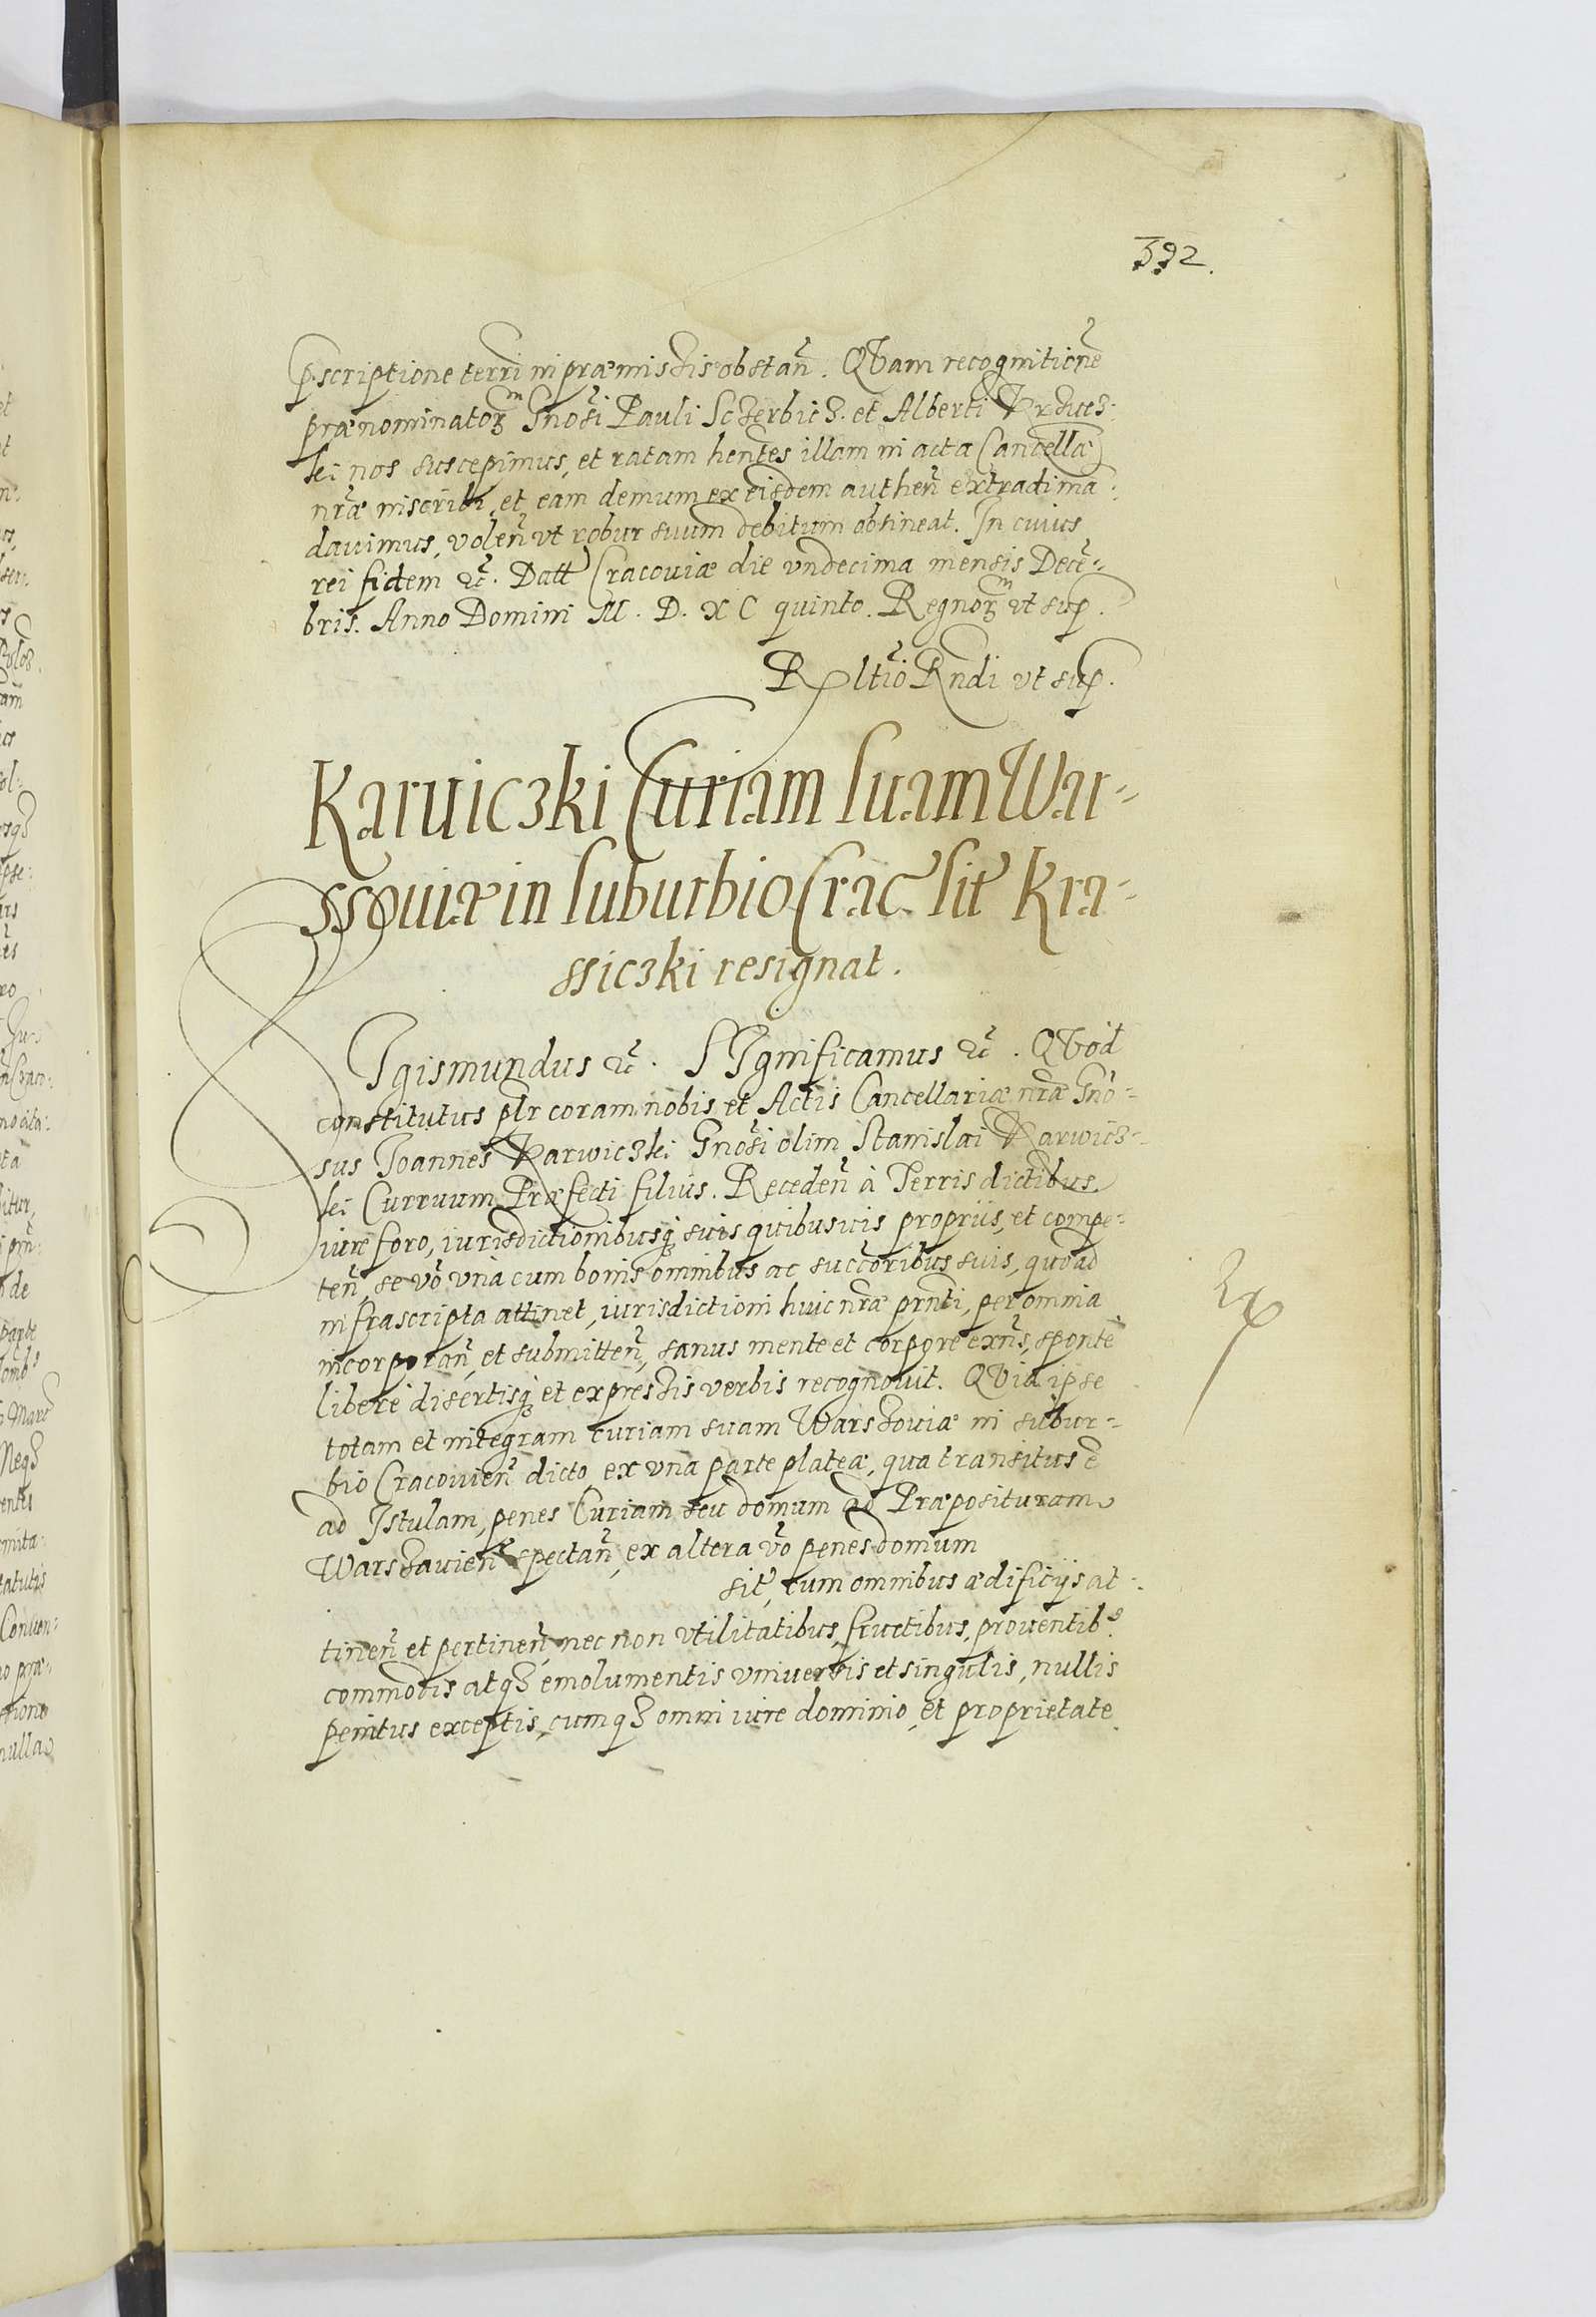 392.
p̱scriptione terri in præmissis obstan̄. QVam recognitionē
prænominatoꝝ Gnosi Pauli Sczerbicz. et Alberti
ki nos suscepimus, et ratam hentes illam in acta Cancella
nr̄æ inscribi, et eam demum ex eisdem authen̄ extradi ma:
dauimus, volen̄ vt robur suum debitum obtineat. In cuius
rei fidem &c̄. Datt Cracouiæ die vndecima mensis Decē:
bris. Anno Domini M. D. XC quinto. Regnoꝝ vt sup.
Rltio Rndi vt sup.
Karuiczki Curiam suam War-
ssouiæ in suburbio Crac̄ sit Kra-
ssiczki resignat.
SIgismundus &c̄. SIgnificamus &c̄. QVod
constitutus plr coram nobis et Actis Cancellariæ nr̄æ Gno-
sus Joannes Karwiczki Gnosi olim Stanislai Karwicz-
ki Curruum Præfecti filius. Receden̄ à Terris dictibus
iure foro, iurisdictionibusq̨ suis quibusuis propriis, et compe-
ten̄, se vō vnà cum bonis omnibus ac succ̄oribus suis, quoad
infrascripta attinet, iurisdictioni huic nr̄æ prn̄ti, per omnia
incorporan̄, et submitten̄, sanus mente et corpore exn̄s, sponte
liberè disertisq̨ et expressis verbis recognouit. QVia ipse
totam et integram curiam suam Warssouiæ in subur-
bio Cracouien̄ dicto, ex vna parte plateæ, qua transitus ē
ad Istulam, penes Curiam seu domum ad Præposituram
Warssauien̄ spectan̄, ex altera vō penes domum
sit̄, cum omnibus ædificijs at:
tinen̄ et pertinen̄, nec non vtilitatibus, fructibus, prouentib9
commodis atqȝ emolumentis vniuersis et singulis, nullis
penitus exceptis, cumqȝ omni iure dominio, et proprietate